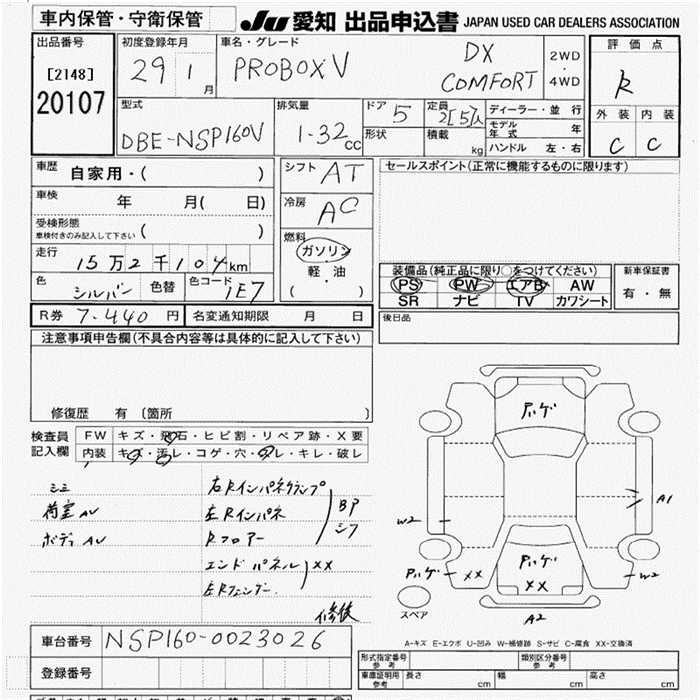 車内保管・守衛保管
JU 愛知 出品申込書 JAPAN USED CAR DEALERS ASSOCIATION
出品番号
[2148]
20107
初度登録年月
29 1 月
車名・グレード
PROBOX V
DX
COMFORT
2WD
・
4WD
評価点
R
外装 内装
C C
型式
DBE-NSP160V
排気量
1-32 cc
ドア 5
形状
定員 2[5]人
積載 kg
ディーラー・並行
モデル年式 年
ハンドル 左・右
車歴 自家用・( )
車検 年 月( 日)
受検形態
車検付きのみ記入して下さい ( )
走行 15万2千104km
色 シルバー 色替 色コード 1E7
シフト AT
冷房 AC
燃料
ガソリン
軽・油
( )
セールスポイント(正常に機能するものに限ります)
装備品(純正品に限り○をつけてください)
PS PW エアB AW
SR ナビ TV カワシート
新車保証書
有・無
後日品
R券 7.440 円 名変通知期限 月 日
注意事項申告欄(不具合内容等は具体的に記入して下さい)
修復歴 有 〔箇所 〕
検査員
記入欄
FW キズ・飛石・ヒビ割・リペア跡・X要
内装 キズ・汚レ・コゲ・穴・ヌレ・キレ・破レ
シミ
荷室 AU
ボディ AU
右Rインパネクランプ
左Rインパネ
Rフロアー
BP
シフ
エンドパネル XX
左Rフェンダー
修後
アハゲ
A1
W2
アハゲ
XX
アハゲ
XX
W2
A2
スペア
A-キズ E-エクボ U-凹み W-補修跡 S-サビ C-腐食 XX-交換済
車台番号 NSP160-0023026
登録番号
形式指定番号
参考
類別区分番号
参考
車庫証明用
参考
長さ cm 幅 cm 高さ cm